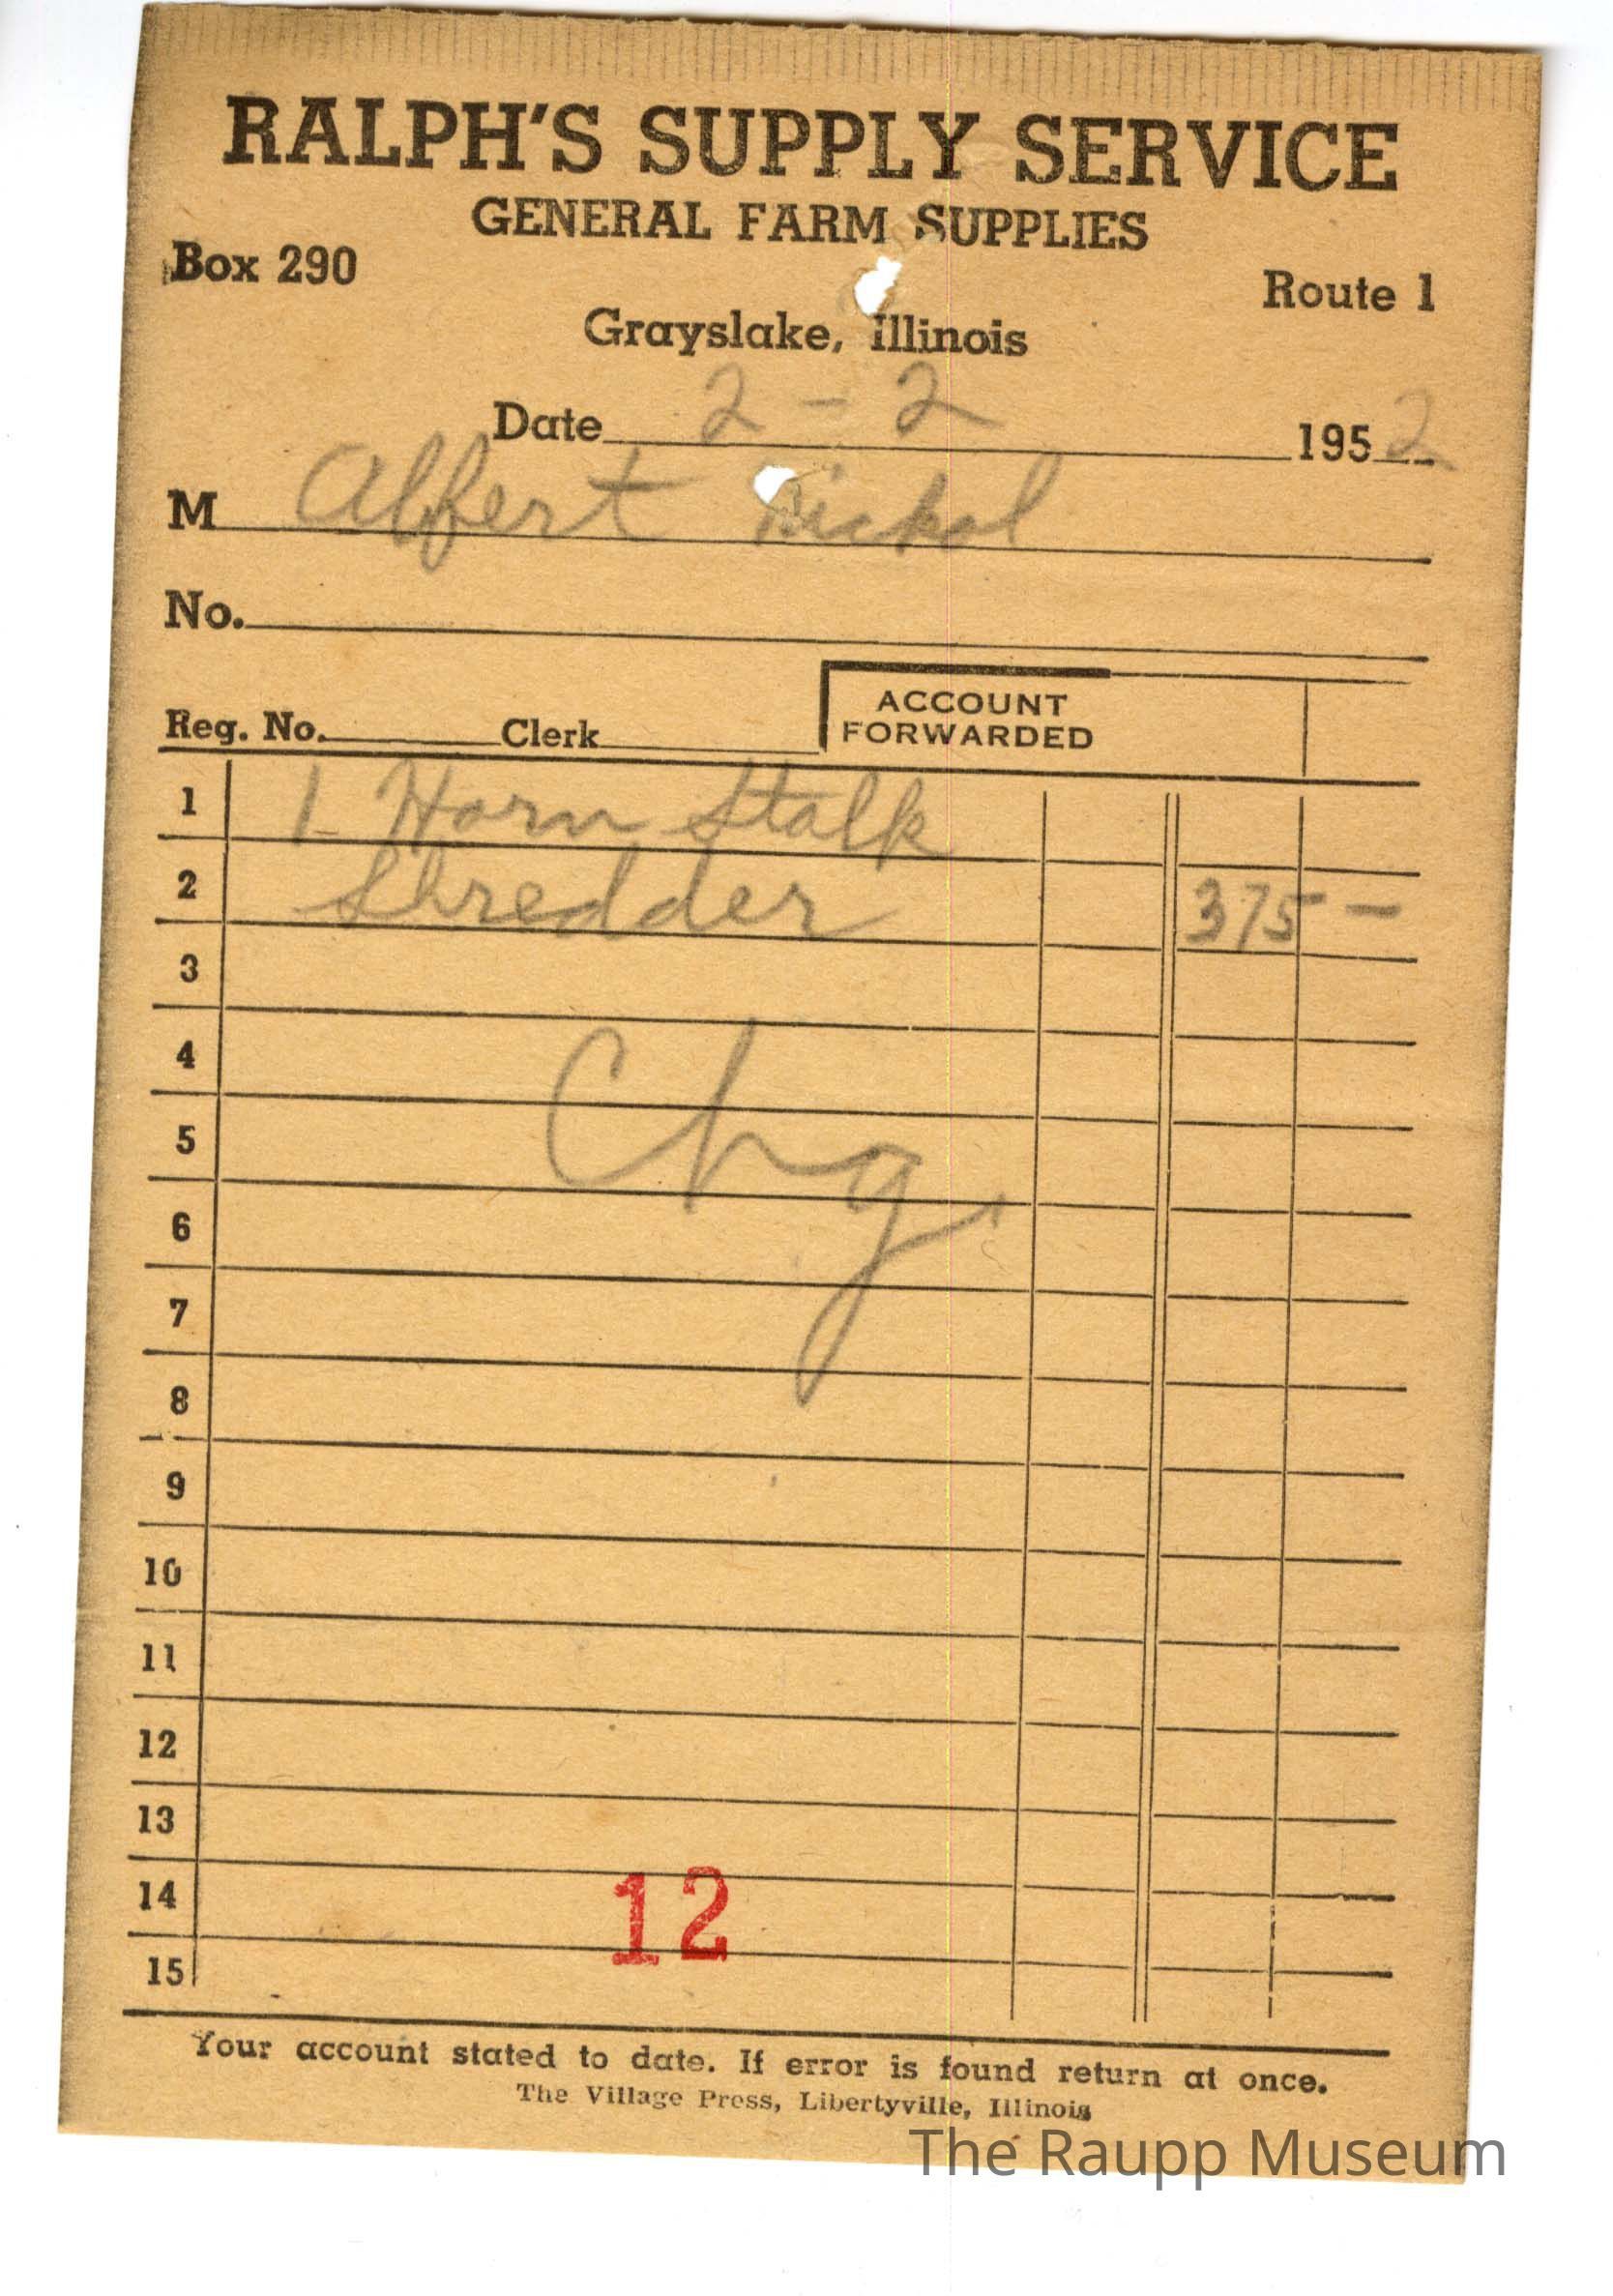 RALPH'S SUPPLY SERVICE
GENERAL FARM SUPPLIES
Box 290
Route 1
Grayslake, Illinois
Date 2 - 2 1952
M Albert Nickol
No.
Reg. No. Clerk ACCOUNT FORWARDED
1 1 Horn Stalk
2 Shredder 375 -
3
4
5 Chg.
6
7
8
9
10
11
12
13
14 12
15
Your account stated to date. If error is found return at once.
The Village Press, Libertyville, Illinois
The Raupp Museum